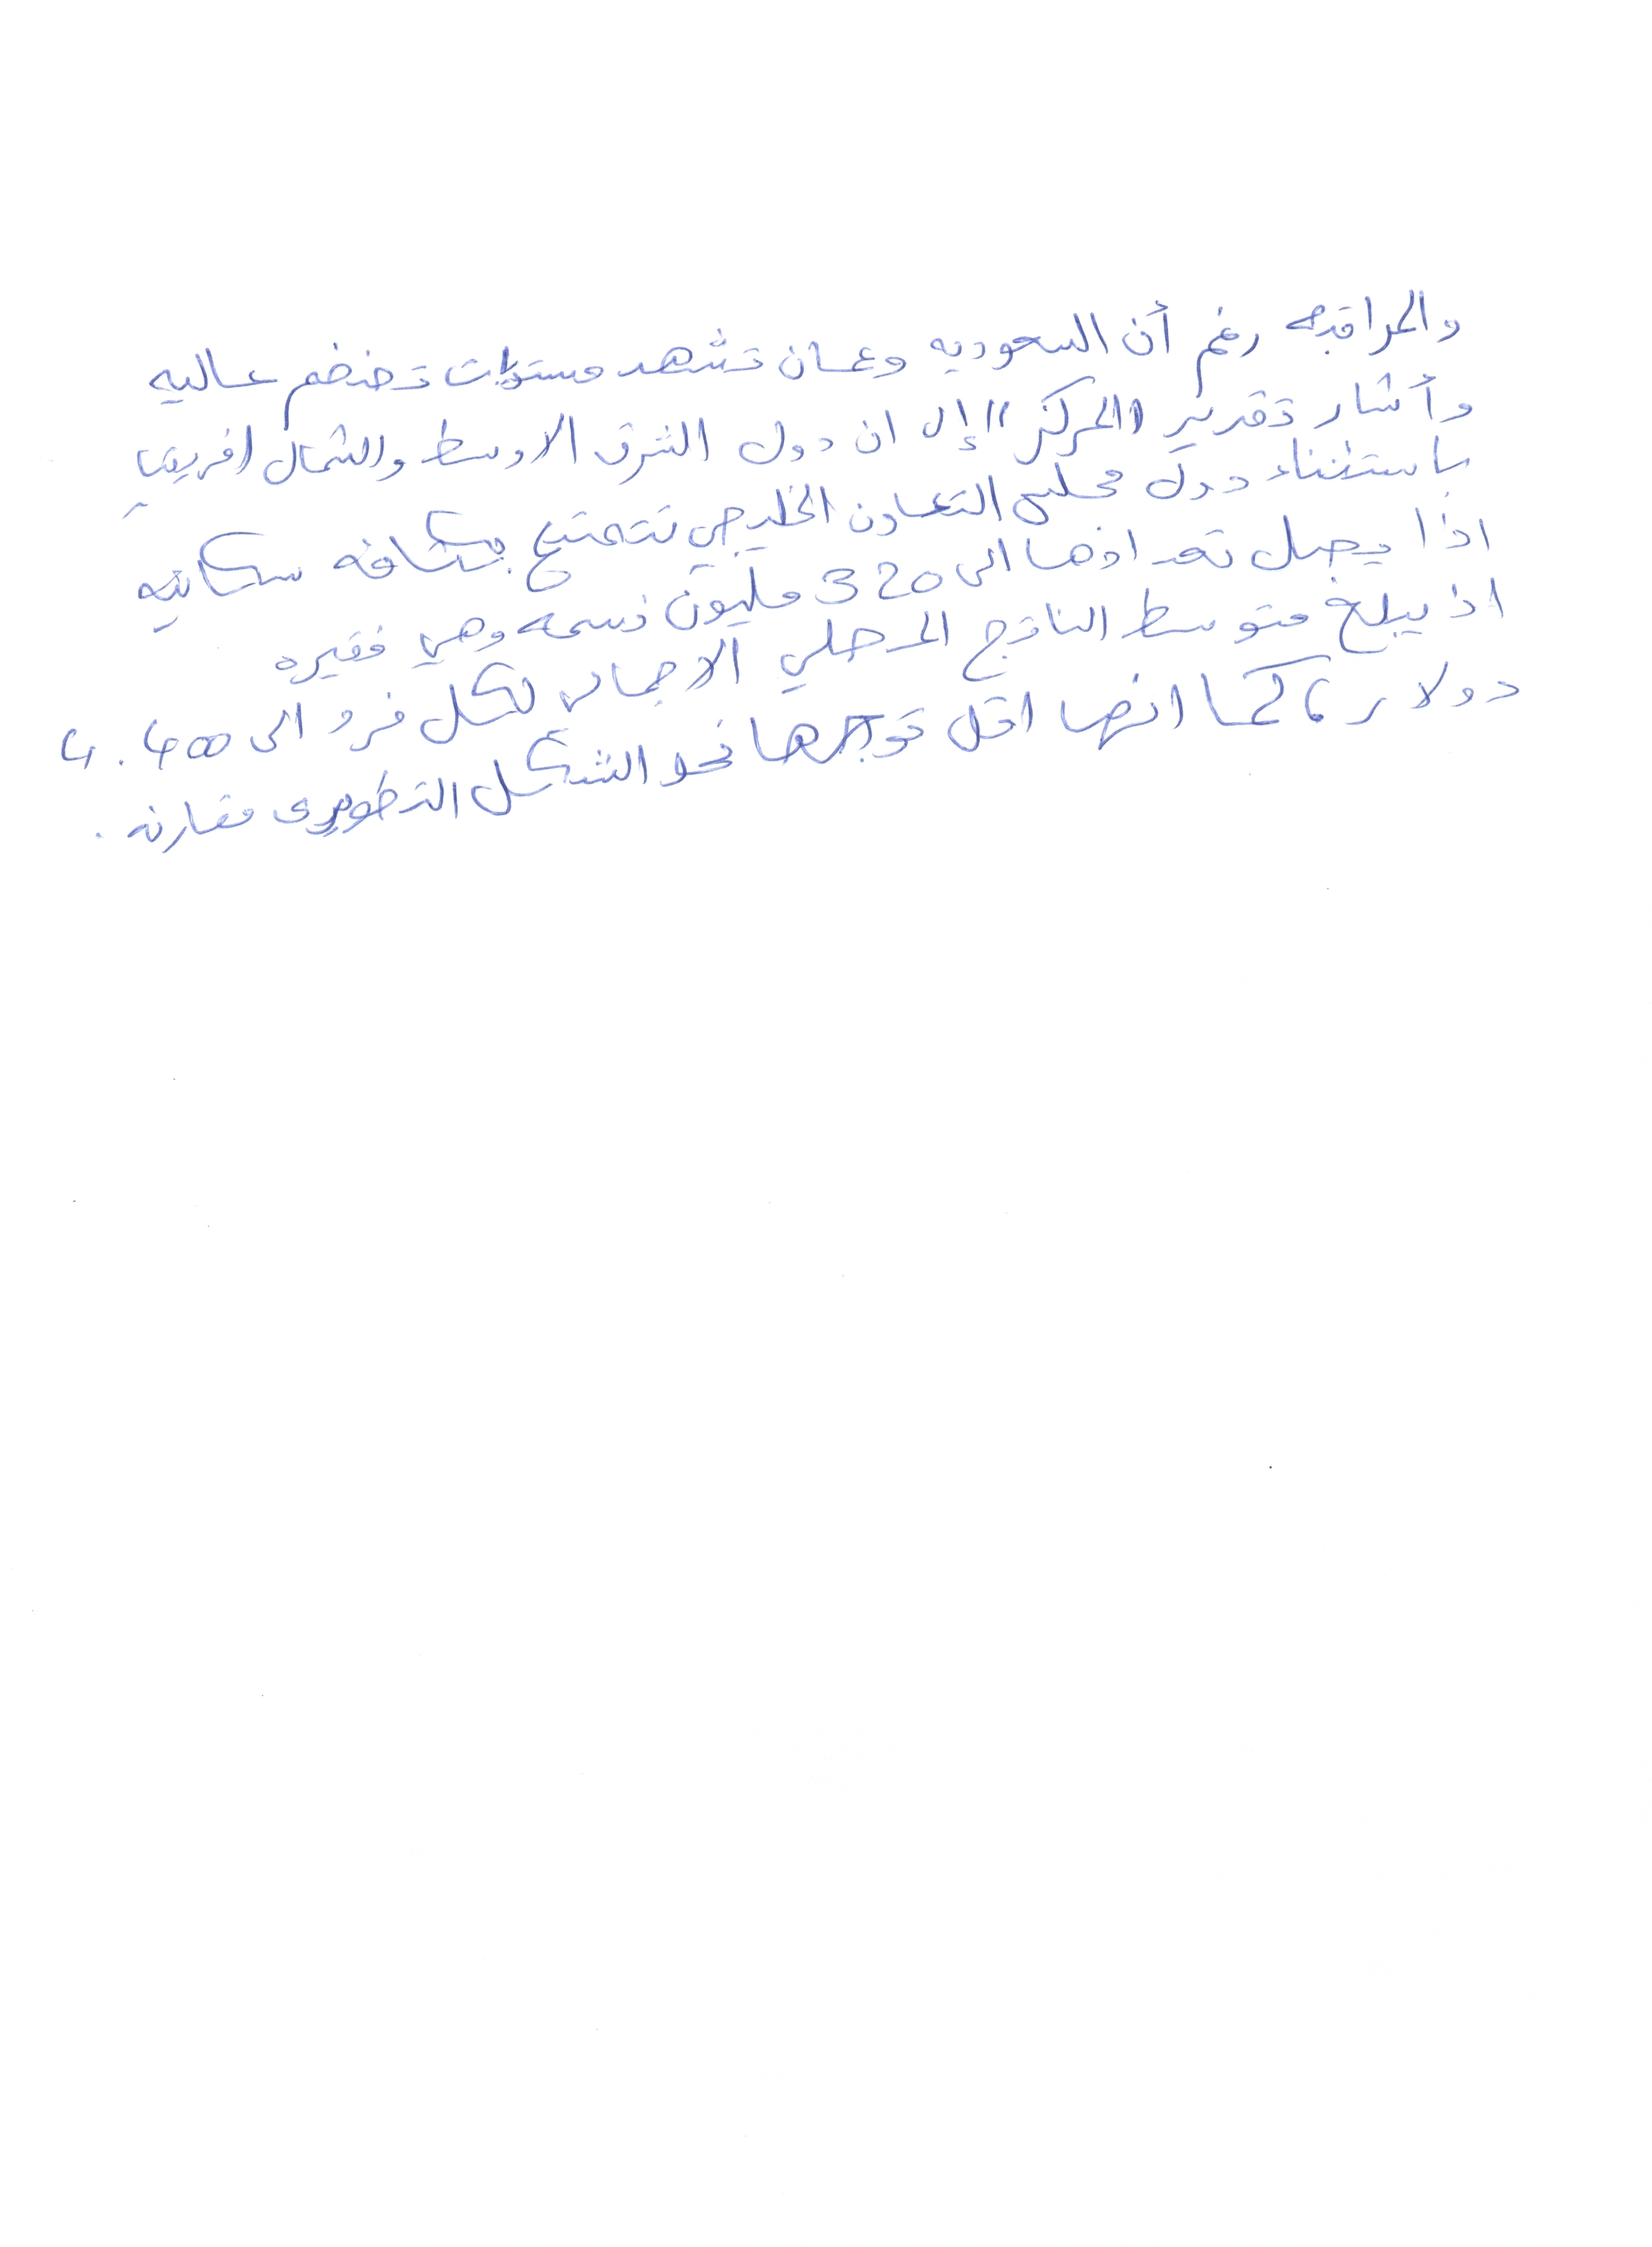 والمراقبه رغم أن السعوديه وعمان تشهد مستويات تضخم عاليه
وأشار تقرير "المركز" إلى ان دول الشرق الاوسط والشمال افريقيا
باستثناء دول مجلس التعاون الخليجي تتمتع بكثافه سكانيه
اذا يصل تعدادها الى 320 مليون نسمه وهي فقيره
اذ يبلغ متوسط الناتج المحلي الاجمالي لكل فرد الى 4.400
دولار، كما انها اقل توجها نحو الشكل التطويرى مقارنه .